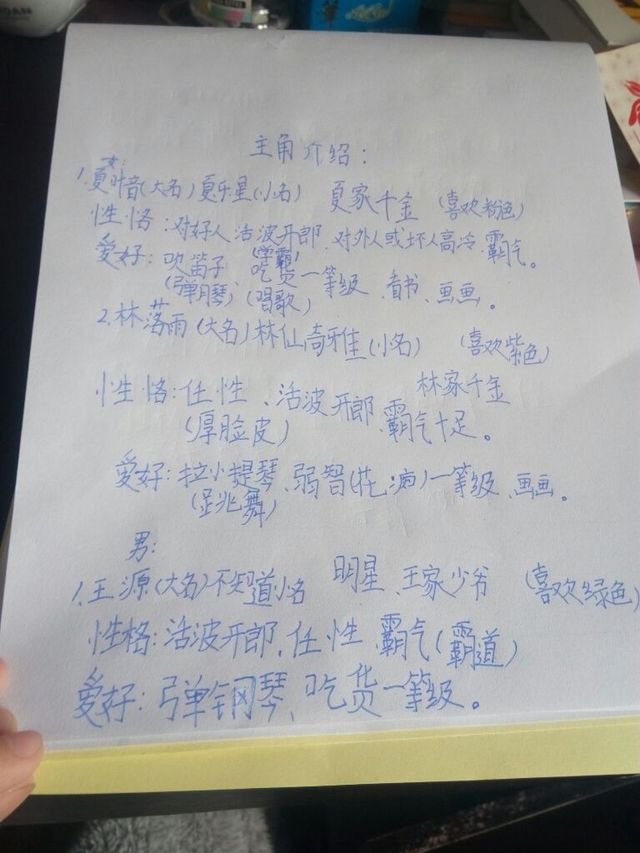 主角介绍：
女：
1.夏叶音(大名)夏乐星(小名) 夏家千金 (喜欢粉色)
性恪：对好人活波开郎、对外人或坏人高冷、霸气。
(学霸)
爱好：吹笛子、吃货一等级、看书、画画。
(弹月琴)、(唱歌)
2.林落雨(大名)林仙奇雅(小名) (喜欢紫色)
林家千金
性恪：任性、活波开郎、霸气十足。
(厚脸皮)
爱好：拉小提琴、弱智(花痴)一等级、画画。
(跳舞)
男：
1.王源(大名)不知道小名 明星、王家少爷 (喜欢绿色)
性格：活波开郎、任性、霸气(霸道)
爱好：弹钢琴、吃货一等级。